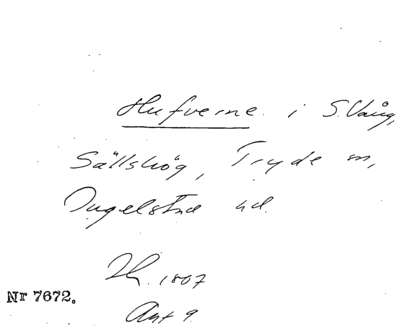 Hufverne i S.Vång,
Sällshög, Tryde sn,
Ingelstad hd.
Lh. 1807
Akt 9.
Nr 7672.